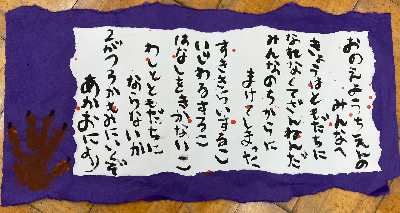 おのえようちえんの
みんなへ
きょうはともだちに
なれなくてざんねんだ
みんなのちからに
まけてしまった
すききらいするこ
いじわるするこ
はなしをきかないこ
わしとともだちに
ならないか
2がつみっかきみにいくぞ
あかおにより